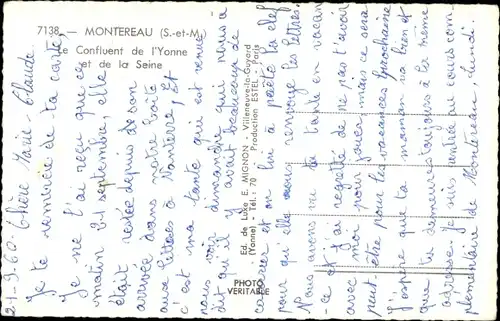 7138. — MONTEREAU (S.-et-M.)
Le Confluent de l'Yonne
et de la Seine
21-9-60. Chère Marie-Claude.
Je te remercie de ta carte,
Je ne l'ai reçu que ce
matin 21 septembre, elle
était restée depuis de son
arrivée dans notre boîte
aux lettres à Nanterre, Et
c'est ma tante qui est venue
nous voir dimanche qui nous a
dit qu'il y avait beaucoup de
courrier et on lui a prêté la clef
pour qu'elle nous renvoye les lettres.
Nous avons vu ta tante en vacan-
-ce et j'ai regretté de ne pas t'avoir
avec moi pour jouer, mais ce sera
peut-être pour les vacances prochaine
J'espère que ta maman va bien et
que tu demeures toujours à la même
adresse. Je suis rentrée au cours com-
plémentaire de Montereau, lundi.
Ed. de Luxe E. MIGNON - Villeneuve-la-Guyard
(Yonne) - Tél.: 70 Production ESTEL - Paris
PHOTO
VERITABLE